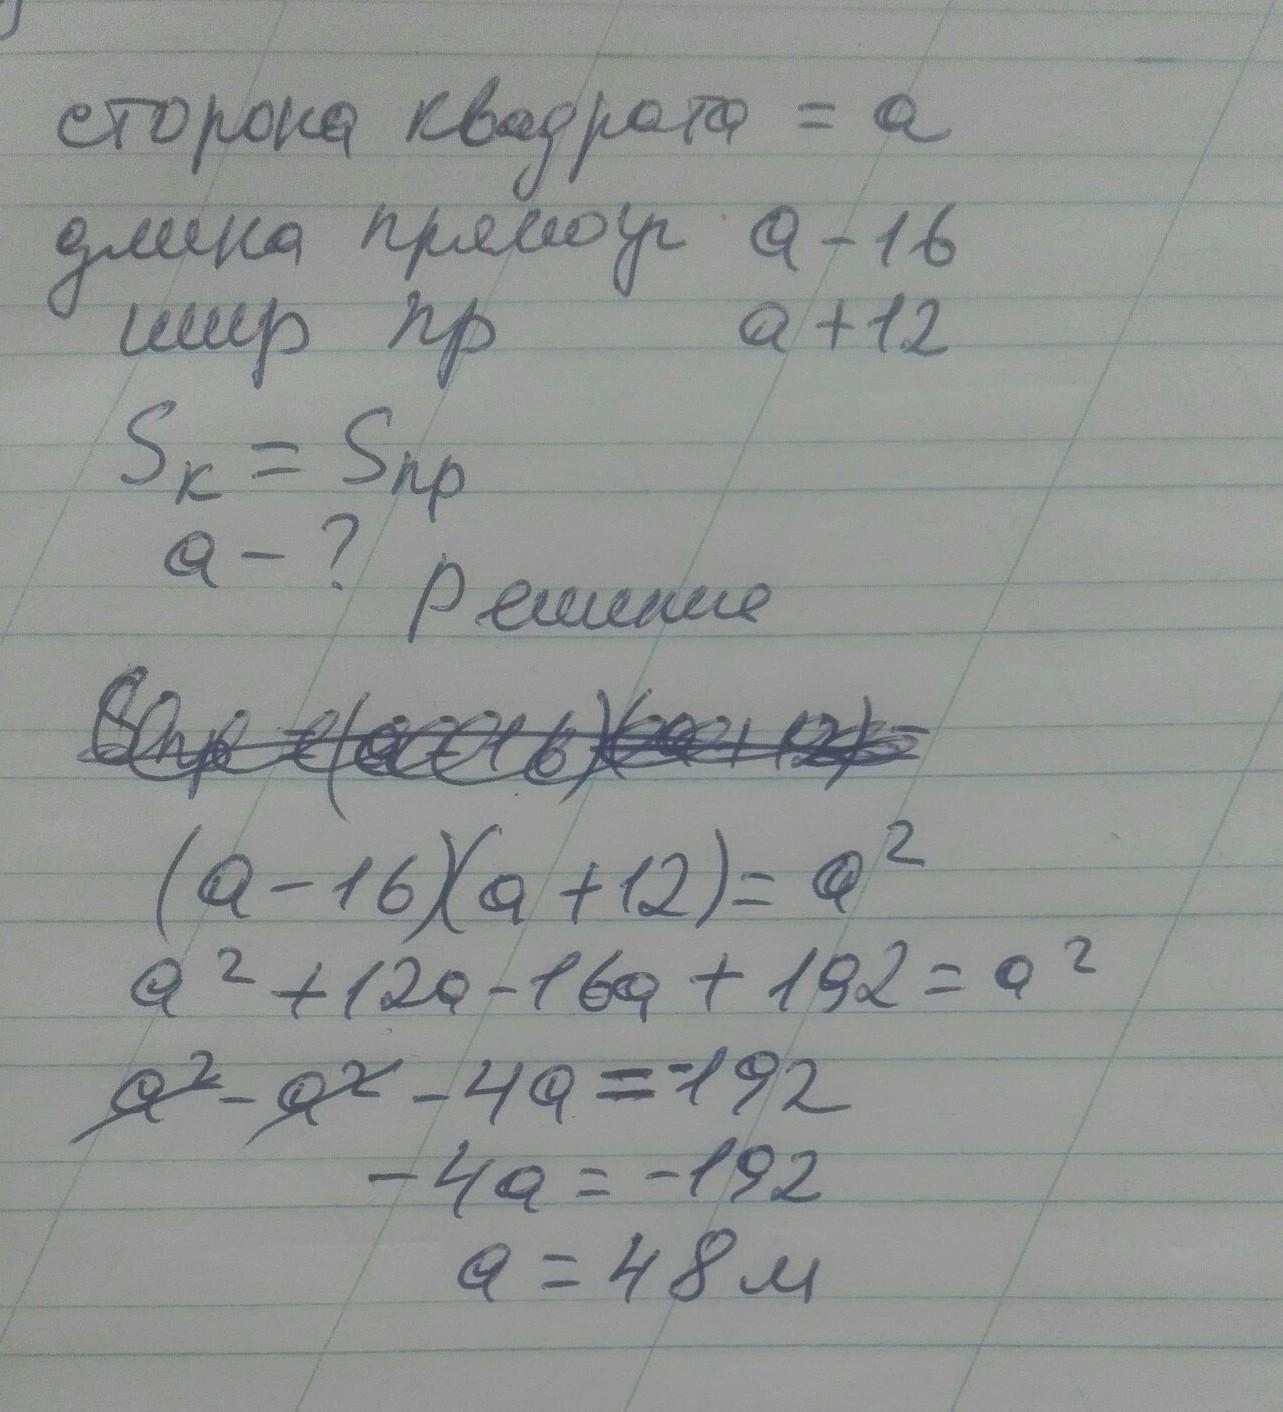 сторона квадрата = a
длина прямоуг a - 16
шир пр a + 12
Sк = Sпр
a - ?
Решение
Sпр = (a - 16)(a + 12) =
(a - 16)(a + 12) = a²
a² + 12a - 16a + 192 = a²
a² - a² - 4a = -192
-4a = -192
a = 48 м